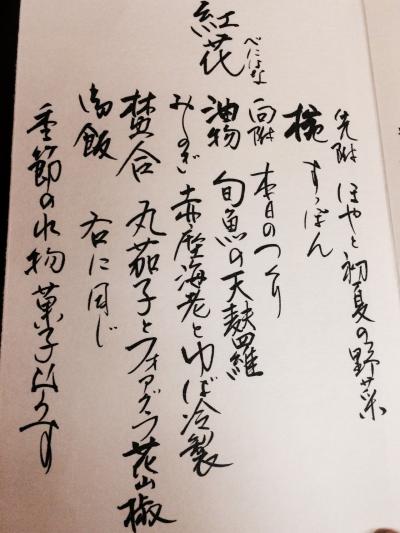 紅花
べにはな
先附 ほやと初夏の野菜
椀 すっぽん
向附 本日のつくり
油物 旬魚の天麩羅
おしのぎ 赤座海老とゆば冷製
焚合 丸茄子とフォアグラ花山椒
御飯 右に同じ
季節の水物 菓子おうす